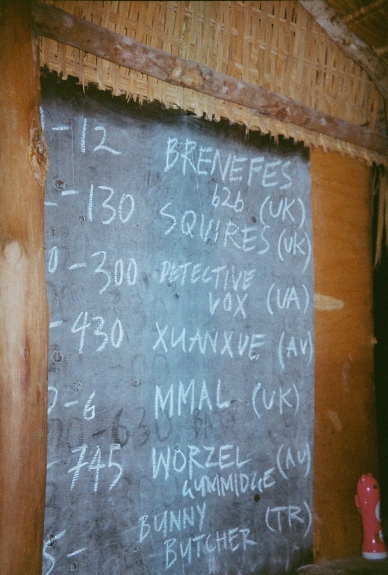 -12 BRENEFES
b2b
-130 SQUIRES (UK)
(UK)
0-300 DETECTIVE
VOX (UA)
-430 XUANXUE (AU)
0-6 MMAL (UK)
-630
-745 WORZEL (AU)
GUMMIDGE
BUNNY (TR)
5- BUTCHER